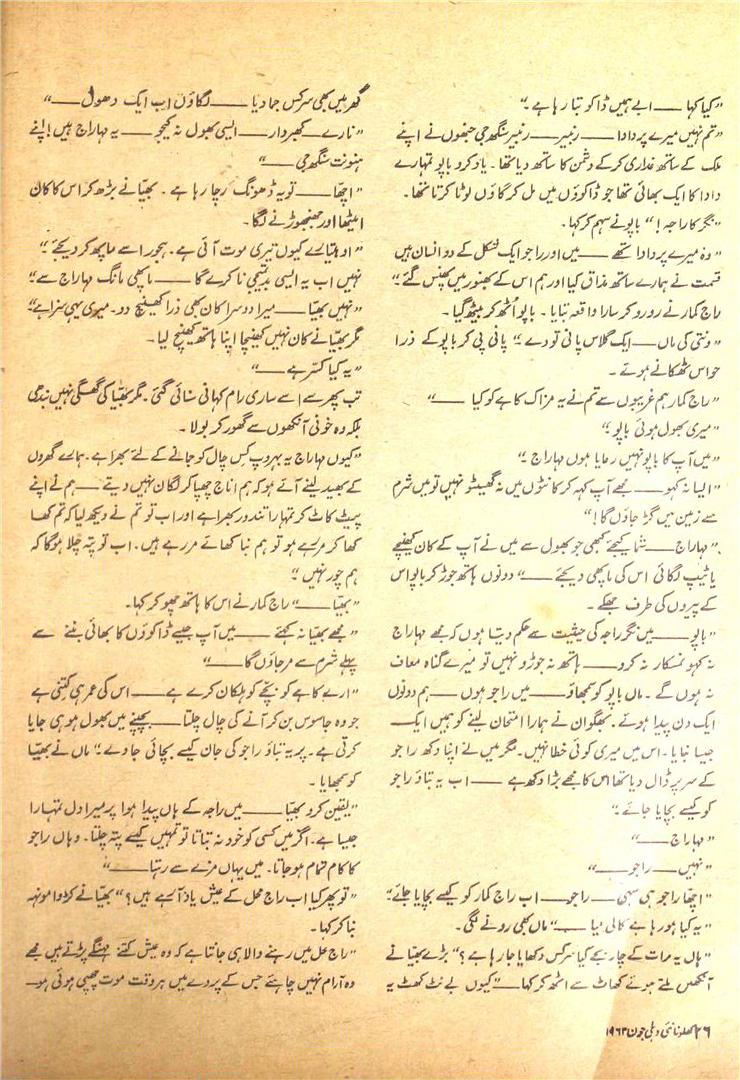 ”کیا کہا —— ابے ہمیں ڈاکو بتا رہا ہے۔“
”تم نہیں میرے پردادا —— رنبیر —— رنبیر سنگھ جی جنھوں نے اپنے
ملک کے ساتھ غداری کرکے دشمن کا ساتھ دیا تھا۔ یاد کرو باپو تمہارے
دادا کا ایک بھائی تھا جو ڈاکوؤں میں مل کر گاؤں لوٹا کرتا تھا۔
”نگر کا راجہ!“ باپو نے سہم کر کہا۔
”وہ میرے پردادا تھے —— میں اور راجو ایک شکل کے دو انسان ہیں
قسمت نے ہمارے ساتھ مذاق کیا اور ہم اس کے بھنور میں پھنس گئے“
راج کمار نے رو رو کر سارا واقعہ بتایا۔ باپو اُٹھ کر بیٹھ گیا۔
”ونتی کی ماں —— ایک گلاس پانی تو دے۔“ پانی پی کر باپو کے ذرا
حواس ٹھکانے ہوئے۔
”راج کمار ہم غریبوں سے تم نے یہ مزاک کاہے کو کیا ——“
”میری بھول ہوئی باپو۔“
”میں آپ کا باپو نہیں رعایا ہوں مہاراج۔“
”ایسا نہ کہو —— مجھے آپ کہہ کر کانٹوں میں نہ گھسیٹو نہیں تو میں شرم
سے زمین میں گڑ جاؤں گا!“
”مہاراج —— شما کیجئے کبھی جو بھول سے میں نے آپ کے کان کھینچے
یا ٹیپ لگائی اس کی ماپھی دیجئے ——“ دونوں ہاتھ جوڑ کر باپو اس
کے پیروں کی طرف جھکے۔
”باپو —— میں نگر راجہ کی حیثیت سے حکم دیتا ہوں کہ مجھے مہاراج
نہ کہو نمسکار نہ کرو —— ہاتھ نہ جوڑو نہیں تو میرے گناہ معاف
نہ ہوں گے۔ ماں باپو کو سمجھاؤ —— میں راجو ہوں —— ہم دونوں
ایک دن پیدا ہوئے۔ بھگوان نے ہمارا امتحان لینے کو ہمیں ایک
جیسا بنایا۔ اس میں میری کوئی خطا نہیں۔ مگر میں نے اپنا دکھ راجو
کے سر پر ڈال دیا تھا اس کا مجھے بڑا دکھ ہے —— اب یہ بتاؤ راجو
کو کیسے بچایا جائے۔“
”مہاراج ——“
”نہیں —— راجو ——“
”اچھا راجو ہی سہی —— راجو —— اب راج کمار کو کیسے بچایا جائے“
”یہ کیا ہو رہا ہے کالی میا ——“ ماں بھی رونے لگی۔
”ہاں یہ رات کے چار بجے کیا سرکس دکھایا جا رہا ہے؟“ بڑے بھیا نے
آنکھیں ملتے ہوئے کھاٹ سے اٹھ کر کہا —— ”کیوں بے نٹ کھٹ یہ
گھر میں بھی سرکس جما دیا —— لگاؤں اب ایک دھول ——“
”نارے —— کھبردار —— ایسی بھول نہ کیجیو —— یہ مہاراج ہیں! اپنے
ہنونت سنگھ جی ——“
”اچھا —— تو یہ ڈھونگ رچا رہا ہے۔ بھیا نے بڑھ کر اس کا کان
اینٹھا اور جھنجھوڑنے لگا۔
”او ہتیارے کیوں تیری موت آئی ہے۔ ہجور اسے ماپھ کر دیجئے۔“
نہیں اب یہ ایسی بدتمیجی نا کرے گا —— ماپھی مانگ مہاراج سے“
”نہیں بھیّا —— میرا دوسرا کان بھی ذرا کھینچ دو۔ میری یہی سزا ہے“
مگر بھیّا نے کان نہیں کھینچا اپنا ہاتھ کھینچ لیا۔
”یہ کیا کستر ہے ——“
تب پھر سے اسے ساری رام کہانی سنائی گئی۔ مگر بھیّا کی گھگی نہیں بندھی
بلکہ وہ خونی آنکھوں سے گھور کر بولا۔
”کیوں مہاراج یہ بہروپ کس چال کو جانے کے لئے بھرا ہے۔ ہمارے گھروں
کے بھید لینے آئے ہو کہ ہم اناج چھپا کر لگان نہیں دیتے —— ہم نے اپنے
پیٹ کاٹ کر تمہارا تندور بھرا ہے اور اب تو تم نے دیکھ لیا کہ تم کھا
کھا کر مر رہے ہو تو ہم نبا کھائے مر رہے ہیں۔ اب تو پتہ چلا ہوگا کہ
ہم چور نہیں۔“
”بھیّا ——“ راج کمار نے اس کا ہاتھ چھو کر کہا۔
”مجھے بھیّا نہ کہئے —— میں آپ جیسے ڈاکوؤں کا بھائی بننے سے
پہلے شرم سے مر جاؤں گا ——“
”ارے کاہے کو بچّے کو ہلکان کرے ہے —— اس کی عمر ہی کتنی ہے
جو وہ جاسوس بن کر آنے کی چال چلتا —— بچپنے میں بھول ہو ہی جایا
کرتی ہے۔ پر یہ بتاؤ راجو کی جان کیسے بچائی جاوے۔“ ماں نے بھیّا
کو سمجھایا۔
”یقین کرو بھیّا —— میں راجہ کے ہاں پیدا ہوا پر میرا دل تمہارا
جیسا ہے۔ اگر میں کسی کو خود نہ بتاتا تو تمہیں کیسے پتہ چلتا۔ وہاں راجو
کا کام تمام ہو جاتا۔ میں یہاں مزے سے رہتا ——“
”تو پھر کیا اب راج محل کے عیش یاد آ رہے ہیں؟“ بھیّا نے کڑوا مونہہ
بنا کر کہا۔
”راج محل میں رہنے والا ہی جانتا ہے کہ وہ عیش کتنے مہنگے پڑتے ہیں مجھے
وہ آرام نہیں چاہئے جس کے پردے میں ہر وقت موت چھپی ہوئی ہو ——
۲۶ کھلونا نئی دہلی جون ۱۹۶۳ء